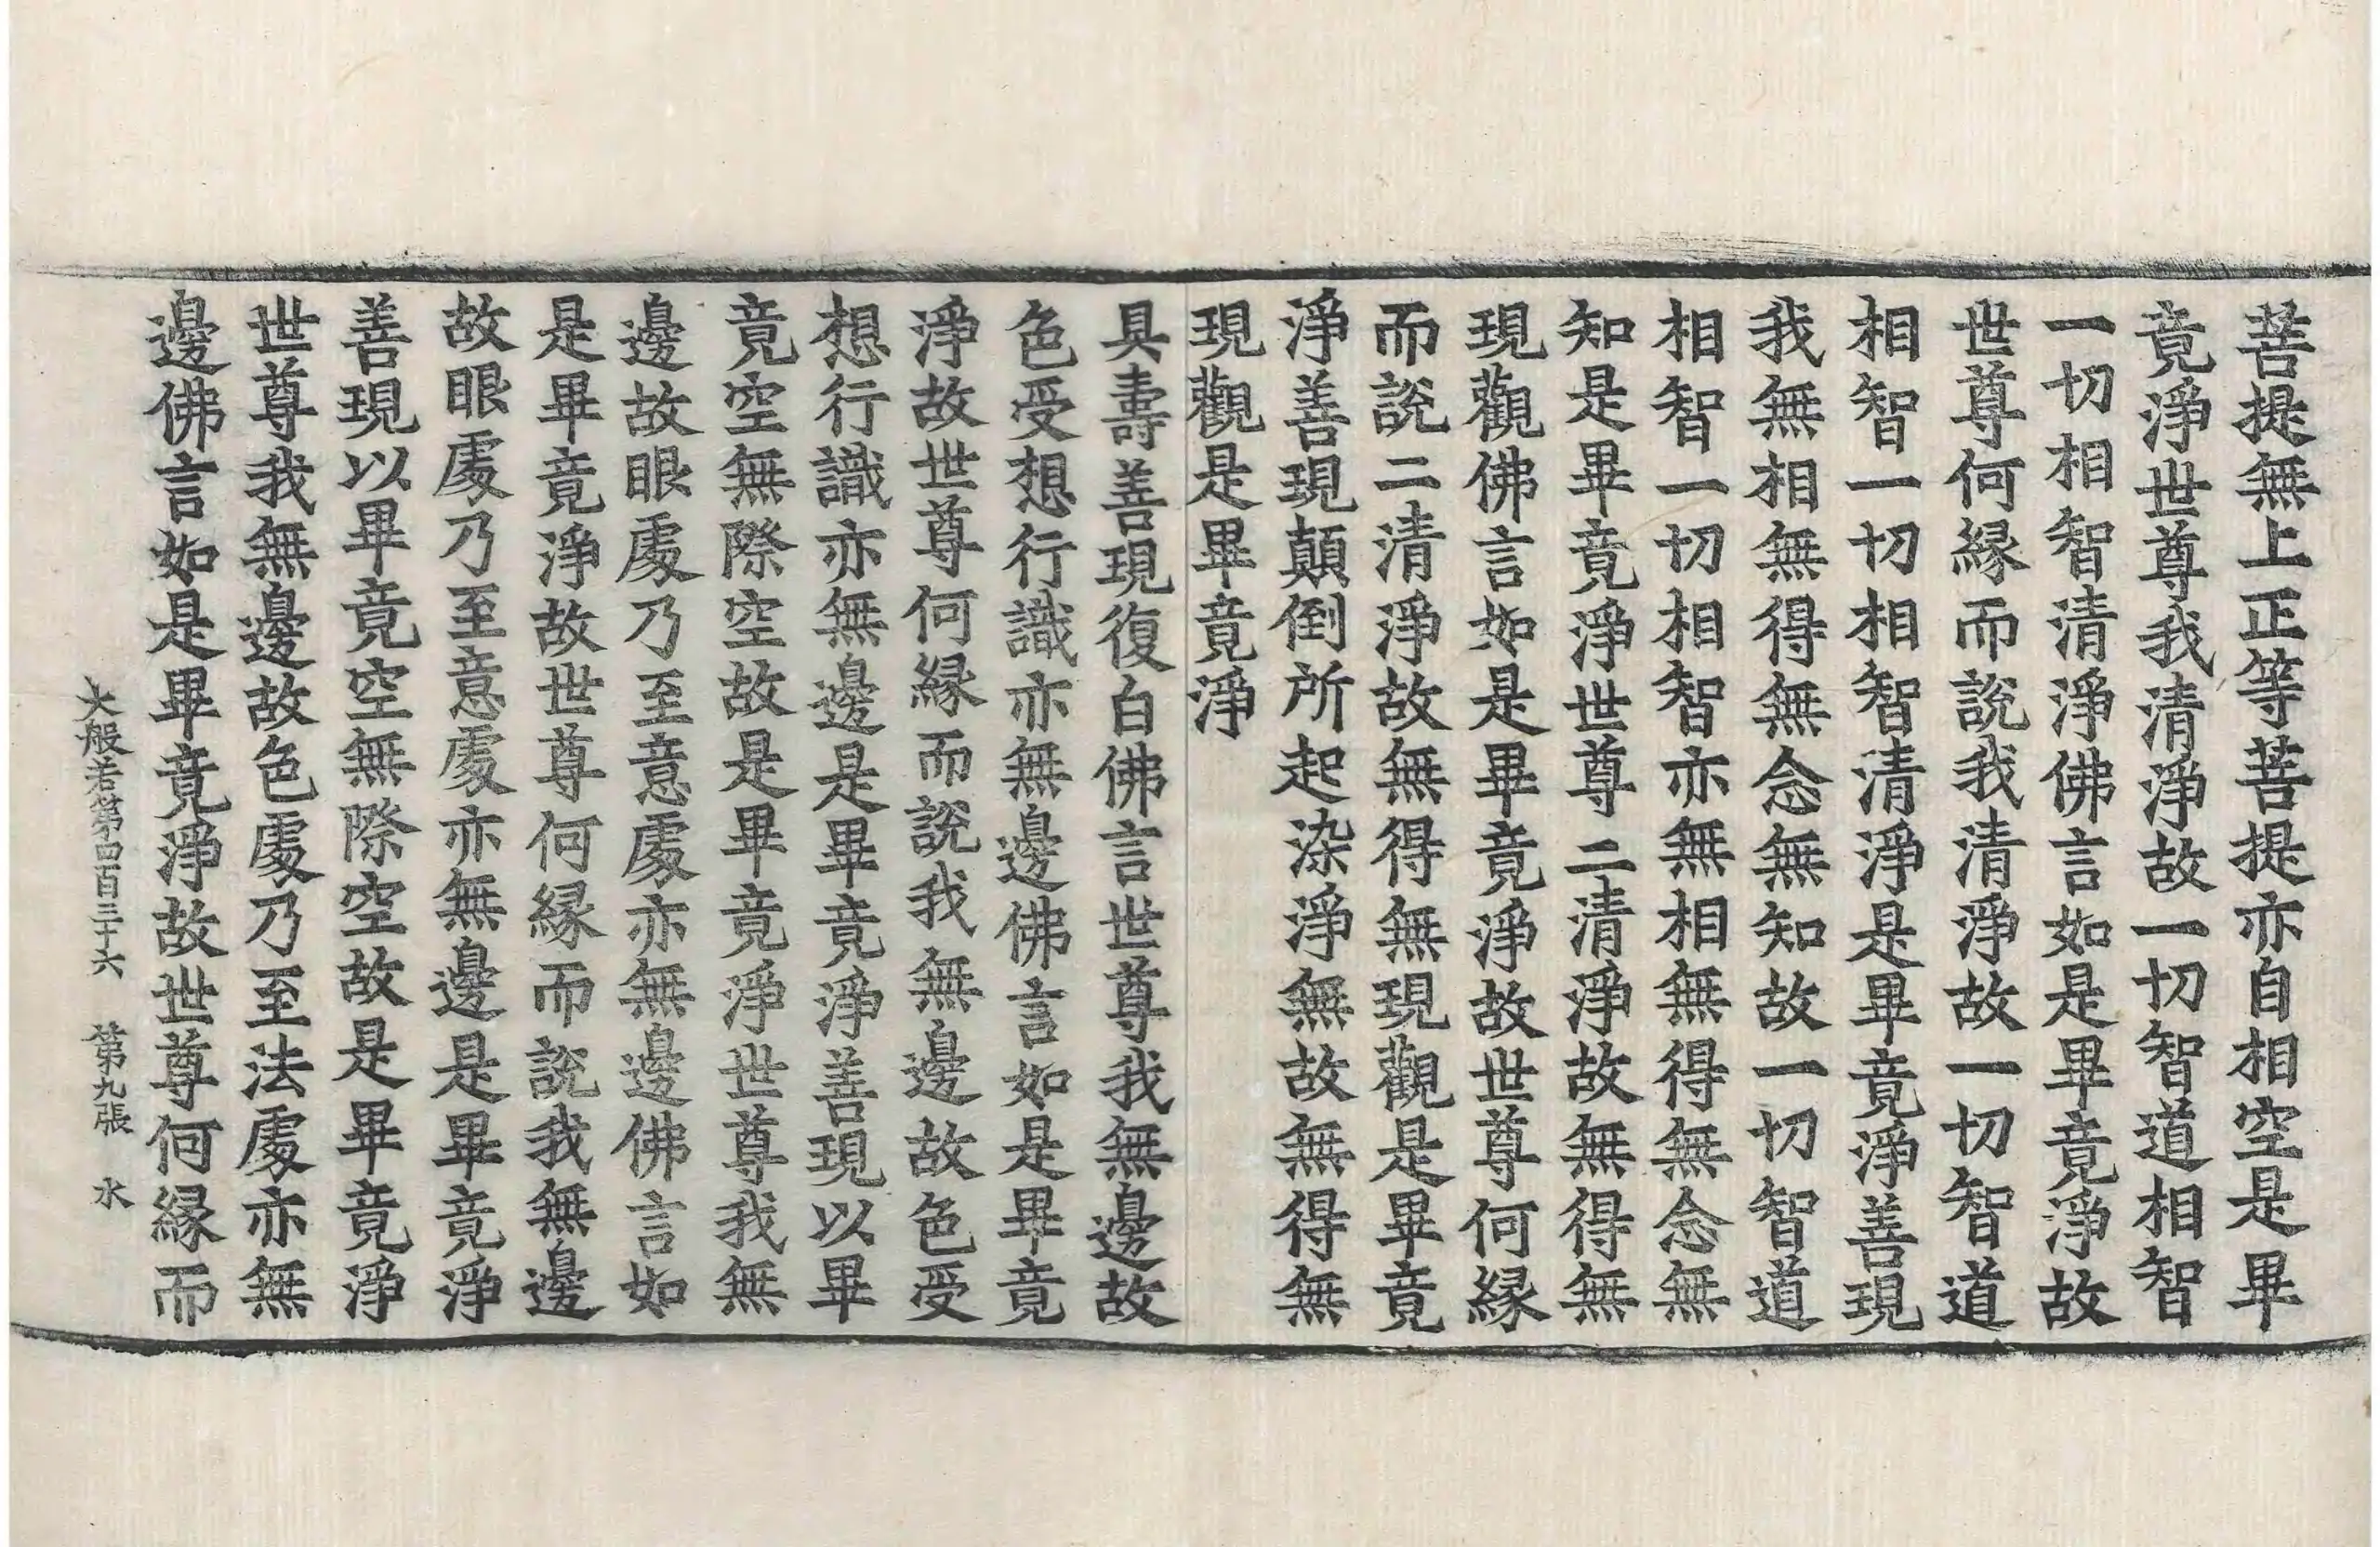 菩提無上正等菩提亦自相空是畢
竟淨世尊我清淨故一切智道相智
一切相智清淨佛言如是畢竟淨故
世尊何緣而說我清淨故一切智道
相智一切相智清淨是畢竟淨善現
我無相無得無念無知故一切智道
相智一切相智亦無相無得無念無
知是畢竟淨世尊二清淨故無得無
現觀佛言如是畢竟淨故世尊何緣
而說二清淨故無得無現觀是畢竟
淨善現顛倒所起染淨無故無得無
現觀是畢竟淨
具壽善現復白佛言世尊我無邊故
色受想行識亦無邊佛言如是畢竟
淨故世尊何緣而說我無邊故色受
想行識亦無邊是畢竟淨善現以畢
竟空無際空故是畢竟淨世尊我無
邊故眼處乃至意處亦無邊佛言如
是畢竟淨故世尊何緣而說我無邊
故眼處乃至意處亦無邊是畢竟淨
善現以畢竟空無際空故是畢竟淨
世尊我無邊故色處乃至法處亦無
邊佛言如是畢竟淨故世尊何緣而
大般若第四百三十六 第九張 水